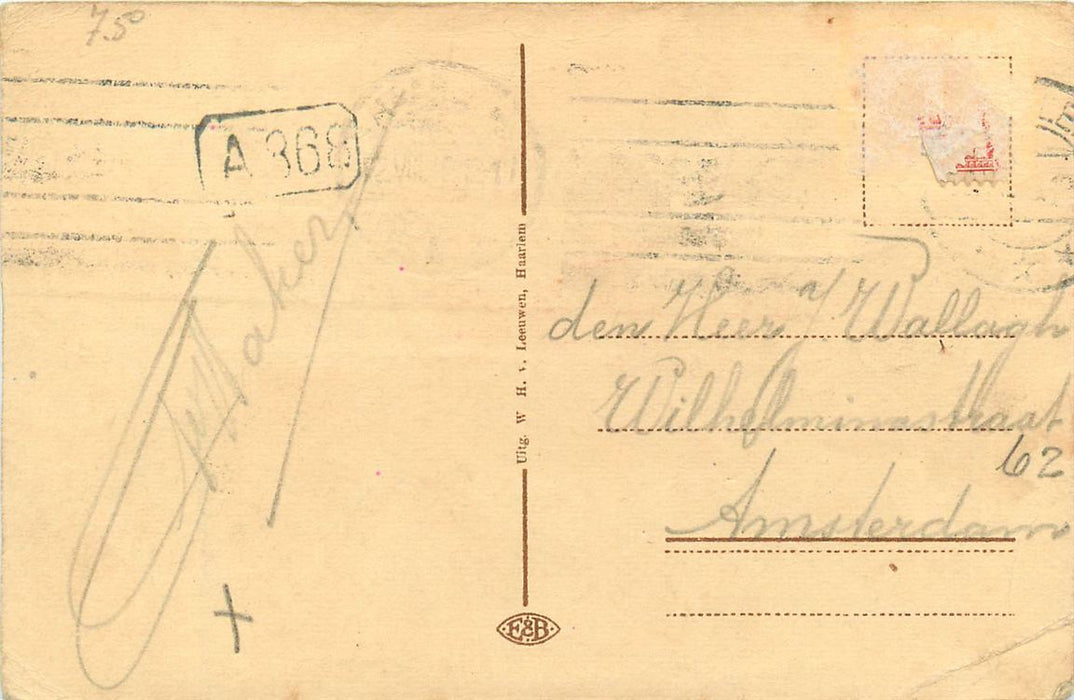 7.50
A 368
den Heer A/ Wallagh
Wilhelminastraat
62
Amsterdam
Uitg. W. H. v. Leeuwen, Haarlem
E&B